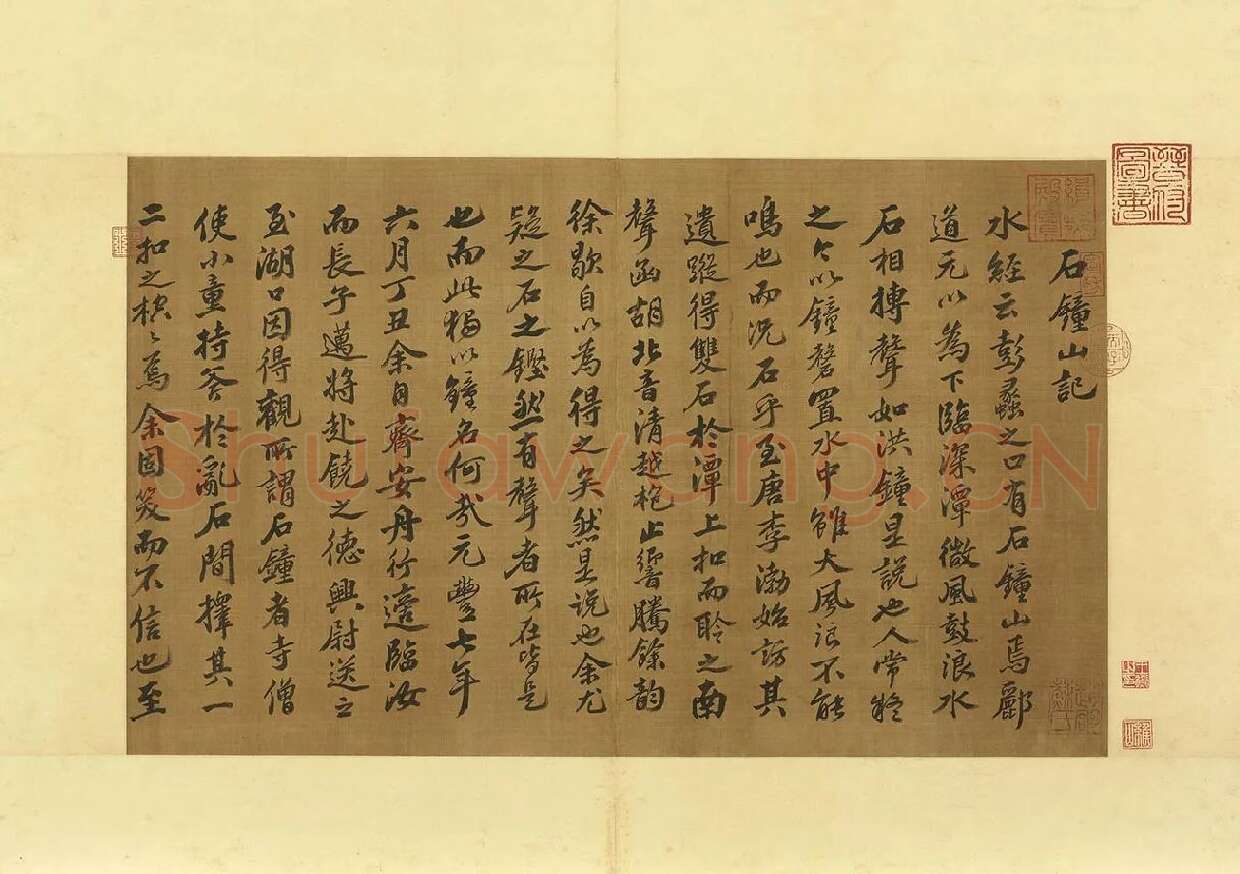 石鐘山記
水經云彭蠡之口有石鐘山焉酈
道元以為下臨深潭微風鼓浪水
石相搏聲如洪鐘是說也人常疑
之今以鐘磬置水中雖大風浪不能
鳴也而況石乎至唐李渤始訪其
遺蹤得雙石於潭上扣而聆之南
聲函胡北音清越枹止響騰餘韵
徐歇自以為得之矣然是說也余尤
疑之石之鏗然有聲者所在皆是
也而此獨以鐘名何哉元豐七年
六月丁丑余自齊安舟行適臨汝
而長子邁將赴饒之德興尉送之
至湖口因得觀所謂石鐘者寺僧
使小童持斧於亂石間擇其一
二扣之硿〻焉余固笑而不信也至
Shufawang.CN